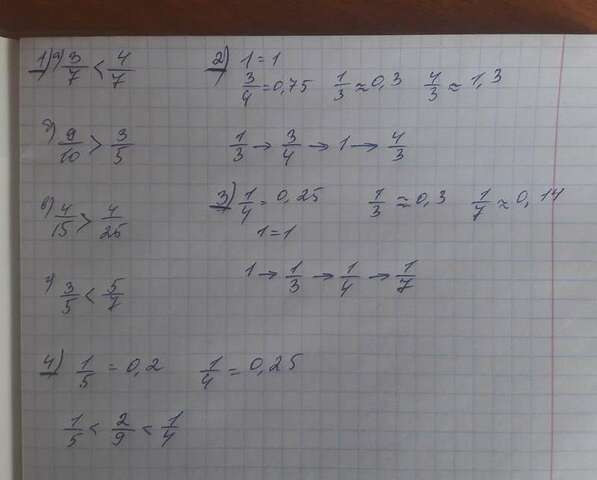 1) а) 3/7 < 4/7
б) 9/10 > 3/5
в) 4/15 > 4/25
г) 3/5 < 5/7
2) 1 = 1
3/4 = 0,75 1/3 ≈ 0,3 4/3 ≈ 1,3
1/3 → 3/4 → 1 → 4/3
3) 1/4 = 0,25 1/3 ≈ 0,3 1/7 ≈ 0,14
1 = 1
1 → 1/3 → 1/4 → 1/7
4) 1/5 = 0,2 1/4 = 0,25
1/5 < 2/9 < 1/4